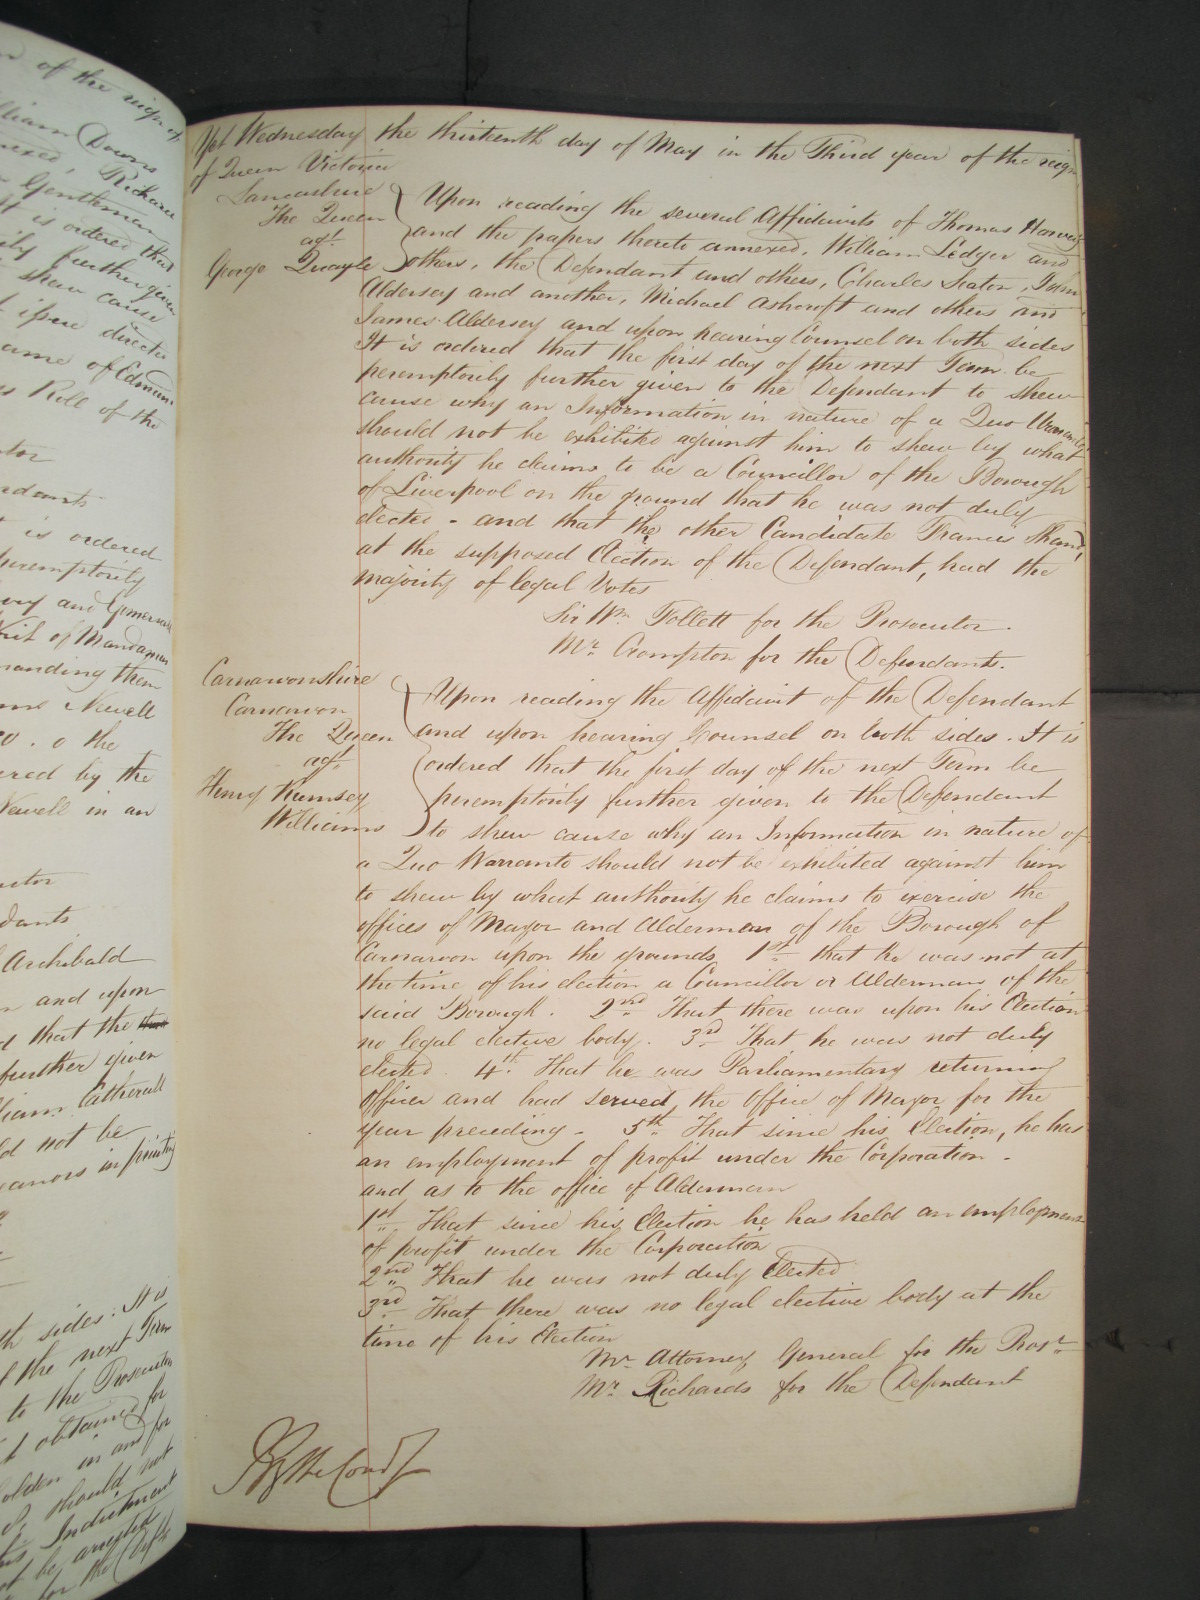 of the reign of
William Downs
annexed, Richard
Gentleman
It is ordered that
further given
shew cause
issue directed
name of Edmund
Rule of the
is ordered
peremptorily
and Gomersall
Writ of Mandamus
commanding them
Newell
the
by the
Newell in an
Archibald
and upon
that the
further given
William Catherall
not be
in printing
sides. It is
the next Term
to the Prosecutor
obtained for
in and for
should not
Indictment
be arrested
for the Defts
Yet Wednesday the thirteenth day of May in the Third year of the reign
of Queen Victoria
Lancashire
The Queen
agt.
George Quayle
Upon reading the several Affidavits of Thomas Harvey
and the papers thereto annexed, William Ledger and
others, the Defendant and others, Charles Seaton, John
Aldersey and another, Michael Ashcroft and others and
James Aldersey and upon hearing Counsel on both sides
It is ordered that the first day of the next Term be
peremptorily further given to the Defendant to shew
cause why an Information in nature of a Quo Warranto
should not be exhibited against him to shew by what
authority he claims to be a Councillor of the Borough
of Liverpool on the ground that he was not duly
elected - and that the other Candidate Francis Shand,
at the supposed Election of the Defendant, had the
majority of legal Votes
Sir Wm. Follett for the Prosecutor.
Mr. Crompton for the Defendants.
Carnarvonshire
Carnarvon
The Queen
agt.
Henry Rumsey
Williams
Upon reading the Affidavit of the Defendant
and upon hearing Counsel on both sides. It is
ordered that the first day of the next Term be
peremptorily further given to the Defendant
to shew cause why an Information in nature of
a Quo Warranto should not be exhibited against him
to shew by what authority he claims to exercise the
offices of Mayor and Alderman of the Borough of
Carnarvon upon the grounds 1st. that he was not at
the time of his election a Councillor or Alderman of the
said Borough. 2nd. That there was upon his Election
no legal elective body. 3rd. That he was not duly
elected. 4th. That he was Parliamentary returning
Officer and had served the Office of Mayor for the
year preceding - 5th. That since his Election, he has
an employment of profit under the Corporation -
and as to the office of Alderman
1st. That since his Election he has held an employment
of profit under the Corporation
2nd. That he was not duly Elected
3rd. That there was no legal elective body at the
time of his Election
Mr. Attorney General for the Prosr.
Mr. Richards for the Defendant
By the Court